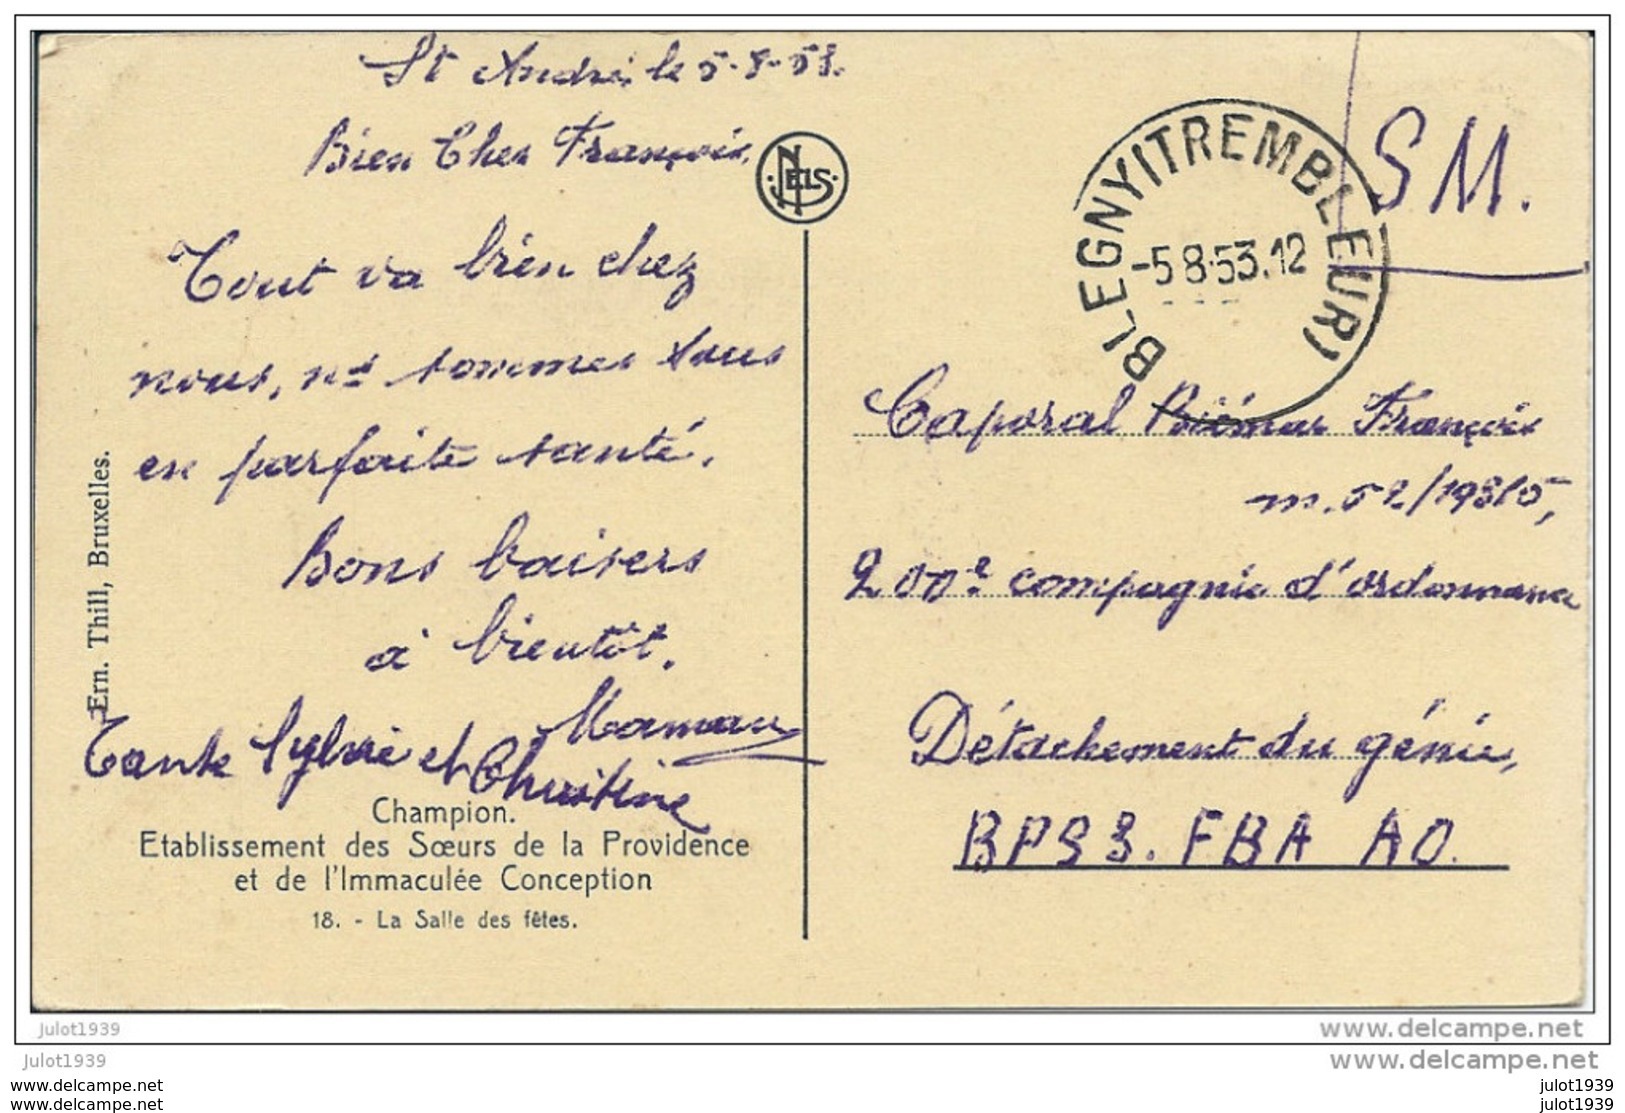 St André, le 5-8-53.
Bien Cher François,
Tout va bien chez
nous, ns sommes tous
en parfaite santé.
Bons baisers
à bientôt.
Maman
Tante Sylvie et Christine
Ern. Thill, Bruxelles.
NELS
Champion.
Etablissement des Sœurs de la Providence
et de l'Immaculée Conception
18. - La Salle des fêtes.
BLEGNY(TREMBLEUR)
-5 8·53.12
SM.
Caporal Biémar François
m. 52/19815,
200e compagnie d'ordonnance
Détachement du génie,
BPS 3. FBA AO.
julot1939
www.delcampe.net
julot1939
www.delcampe.net
www.delcampe.com
julot1939
www.delcampe.com
julot1939